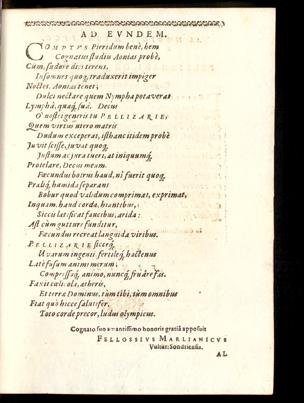 AD EVNDEM.
COMPTVS Pieridum benè, hem
Cognatus studiu Aonias probè,
Cum, sudore dies terens,
Insomnes quoq, traduxerit impiger
Noctes. Aonias tenet;
Dulci nectare quem Nympha potauerat
Lymphâ, quaq, suâ. Decus
O' nostri generis tu PELLIZARIE,
Quem virtus utero matris
Dudum exceperat, isthanc itidem probè
Juvit scisse, juvat quoq,
Justum ac jura tueri, at iniquumq,
Protelare, Decus meum.
Fæcundus hoc haud, ni fuerit quoq,
humida separans
Robur quod validum comprimat, exprimat,
Inquam, haud corda, hiantibus,
Siccis lætificat faucibus, arida:
Ast cùm gutture funditur,
Fæcundus recreat languida viribus.
PELLIZARIE sicerq,
Uvarum ingenii fertileq, hactenus
Latè fusum animi merum,
animo, nunc
Faxit cæli, soli, ætheris,
Et terræ Dominus, tùm tibi, tùm omnibus
Fiat quò hicce salutifer,
Toto corde precor, ludus olympicus.
Cognato suo amantissimo honoris gratiâ apposuit
FELLOSSIVS MARLIANICVS
Vultur. Sondriensis.
AL